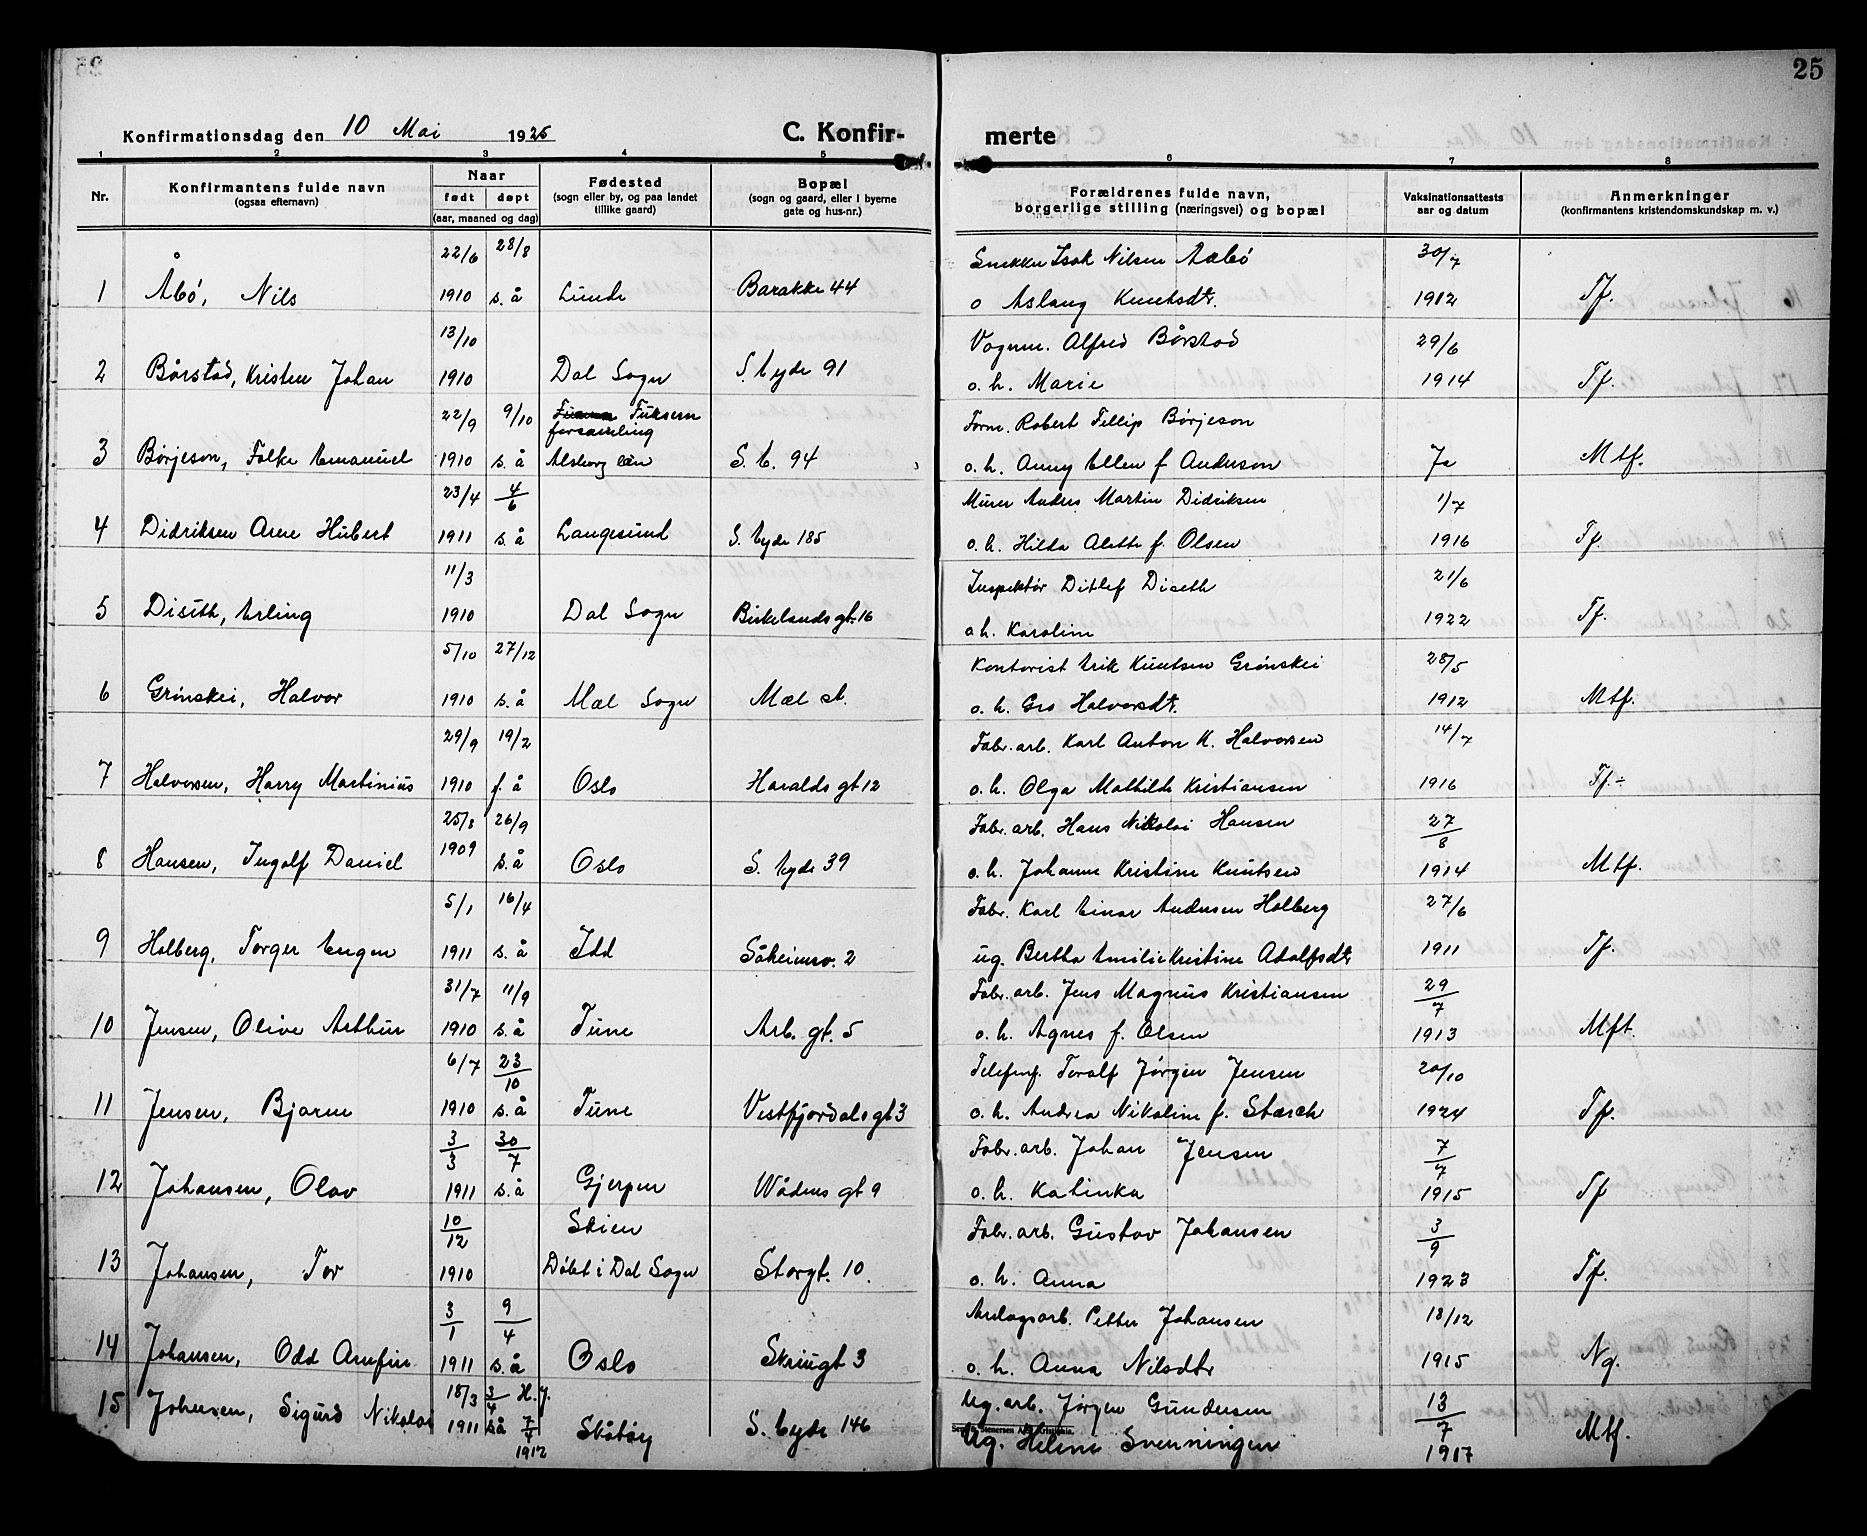 25
Konfirmationsdag den 10 Mai 1925
C. Konfir-
merte
1 2 3 4 5 6 7 8
Nr.
Konfirmantens fulde navn
(ogsaa efternavn)
Naar
født døpt
(aar, maaned og dag)
Fødested
(sogn eller by, og paa landet
tillike gaard)
Bopæl
(sogn og gaard, eller i byerne
gate og hus-nr.)
Forældrenes fulde navn,
borgerlige stilling (næringsvei) og bopæl
Vaksinationsattests
aar og datum
Anmerkninger
(konfirmantens kristendomskundskap m. v.)
22/6 28/8 Snekker Isak Nilsen Aabö 30/7
1 Åbö, Nils 1910 s. å Lunde Barakke 44 o Aslaug Knutsdtr. 1912 Tf.
13/10 Vognm. Alfred Bårstad 29/6
2 Bårstad, Kristen Johan 1910 Dal Sogn S. Eyde 91 o. h. Marie 1914 Tf.
22/9 9/10 Fuksern Form. Robert Fillip Börjeson
forsamling
3 Börjeson, Folke Emanuel 1910 s. å Alsborg län S. E. 94 o. h. Anny Ellen f Anderson Ja Mtf.
23/4 4/6 Murer Anders Martin Didriksen 1/7
4 Didriksen Arne Hubert 1911 s. å Langesund S. Eyde 185 o. h. Hilda Alette f. Olsen 1916 Tf.
11/3 Inspektör Ditlef Diseth 21/6
5 Diseth, Erling 1910 Dal Sogn Birkelands gt. 16 o h. Karoline 1922 Tf.
5/10 27/12 Kontorist Erik Knutsen Grönskei 28/5
6 Grönskei, Halvor 1910 s. å Mæl Sogn Mæl st. o. h. Gro Halvorsdtr. 1912 Mtf.
29/9 19/2 Fabr. arb. Karl Anton K. Halvorsen 14/7
7 Halvorsen, Harry Martinius 1910 f. å Oslo Haralds gt 12 o. h. Olga Mathilde Kristiansen 1916 Tf. ÷
25/8 26/9 Fabr. arb. Hans Nikolai Hansen 27/8
8 Hansen, Ingolf Daniel 1909 s. å Oslo S. Eyde 39 o. h. Johanne Kristine Knutsen 1914 Mtf.
5/1 16/4 Fabr. Karl Einar Andersen Holberg 27/6
9 Holberg, Torger Eugen 1911 s. å Idd Såheimsv. 2 ug. Bertha Emilie Kristine Adolfsdtr 1911 Tf.
31/7 11/9 Fabr. arb. Jens Magnus Kristiansen 29/7
10 Jensen, Olive Arthur 1910 s. å Tune Arb. gt. 5 o. h. Agnes f. Olsen 1913 Mft.
6/7 23/10 Telefonf. Toralf Jørgen Jensen 20/10
11 Jensen, Bjarne 1910 s. å Tune Vestfjordals gt 3 o. h. Andrea Nikoline f. Stærch 1924 Tf.
3/3 30/7 Fabr. arb. Johan Jensen 7/7
12 Johansen, Olav 1911 s. å Gjerpen Wådens gt 9 o. h. Katinka 1915 Tf
10/12 Skien Fabr. arb. Gustav Johansen 3/9
13 Johansen, Tor 1910 Döbt i Dal Sogn Storgt. 10. o. h. Anna 1923 Tf.
3/1 9/4 Anlagsarb. Petter Johansen 18/12
14 Johansen, Odd Arnfin 1911 s. å Oslo Skriugt 3 o. h. Anna Nilsdtr 1915 Ng.
18/3 3/4 H. J. Ug. arb. Jørgen Gundersen 13/7
15 Johnsen, Sigurd Nikolai 1911 så 7/4 1912 Skåtøy S. Eyde 146 Ug. Helene Svenningen 1917 Mtf.